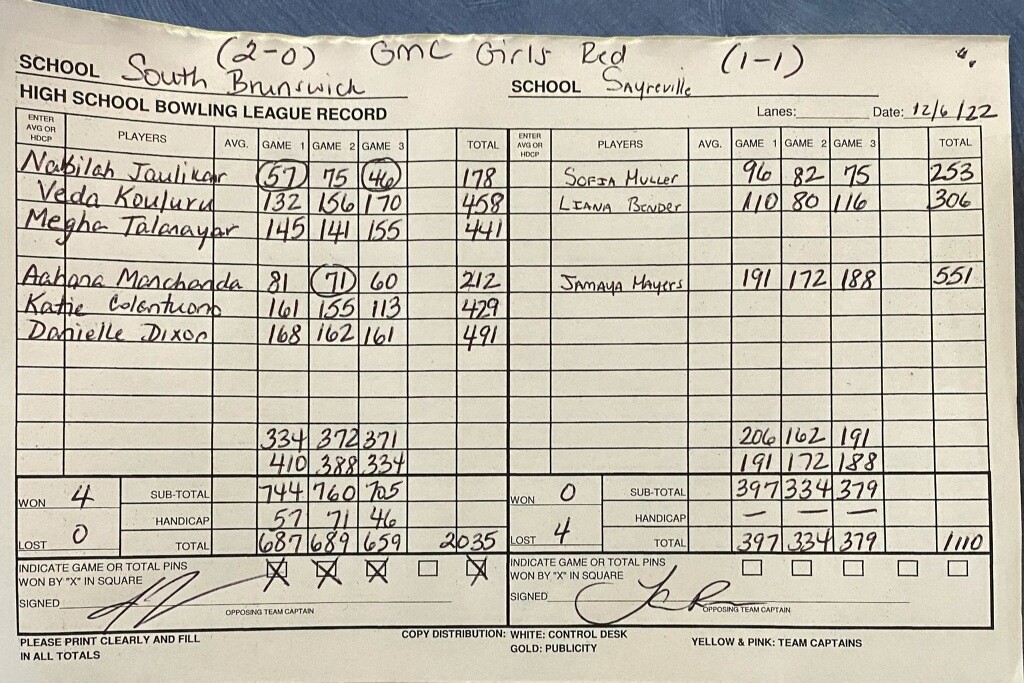 (2-0) GMC Girls Red (1-1)
SCHOOL South Brunswick SCHOOL Sayreville
HIGH SCHOOL BOWLING LEAGUE RECORD Lanes: Date: 12/6/22
ENTER AVG OR HDCP PLAYERS AVG. GAME 1 GAME 2 GAME 3 TOTAL ENTER AVG OR HDCP PLAYERS AVG. GAME 1 GAME 2 GAME 3 TOTAL
Nabilah Jaulikar 57 75 46 178 SOFIA MULLER 96 82 75 253
Veda Kouluru 132 156 170 458 LIANA BENDER 110 80 116 306
Megha Talanayar 145 141 155 441
Aahana Manchanda 81 71 60 212 JAMAYA MAYERS 191 172 188 551
Katie Colentuono 161 155 113 429
Danielle Dixon 168 162 161 491
334 372 371 206 162 191
410 388 334 191 172 188
WON 4 SUB-TOTAL 744 760 705 WON 0 SUB-TOTAL 397 334 379
HANDICAP 57 71 46 HANDICAP — — —
LOST 0 TOTAL 687 689 659 2035 LOST 4 TOTAL 397 334 379 1110
INDICATE GAME OR TOTAL PINS WON BY "X" IN SQUARE X X X X INDICATE GAME OR TOTAL PINS WON BY "X" IN SQUARE
SIGNED SIGNED
OPPOSING TEAM CAPTAIN OPPOSING TEAM CAPTAIN
PLEASE PRINT CLEARLY AND FILL IN ALL TOTALS COPY DISTRIBUTION: WHITE: CONTROL DESK YELLOW & PINK: TEAM CAPTAINS
GOLD: PUBLICITY